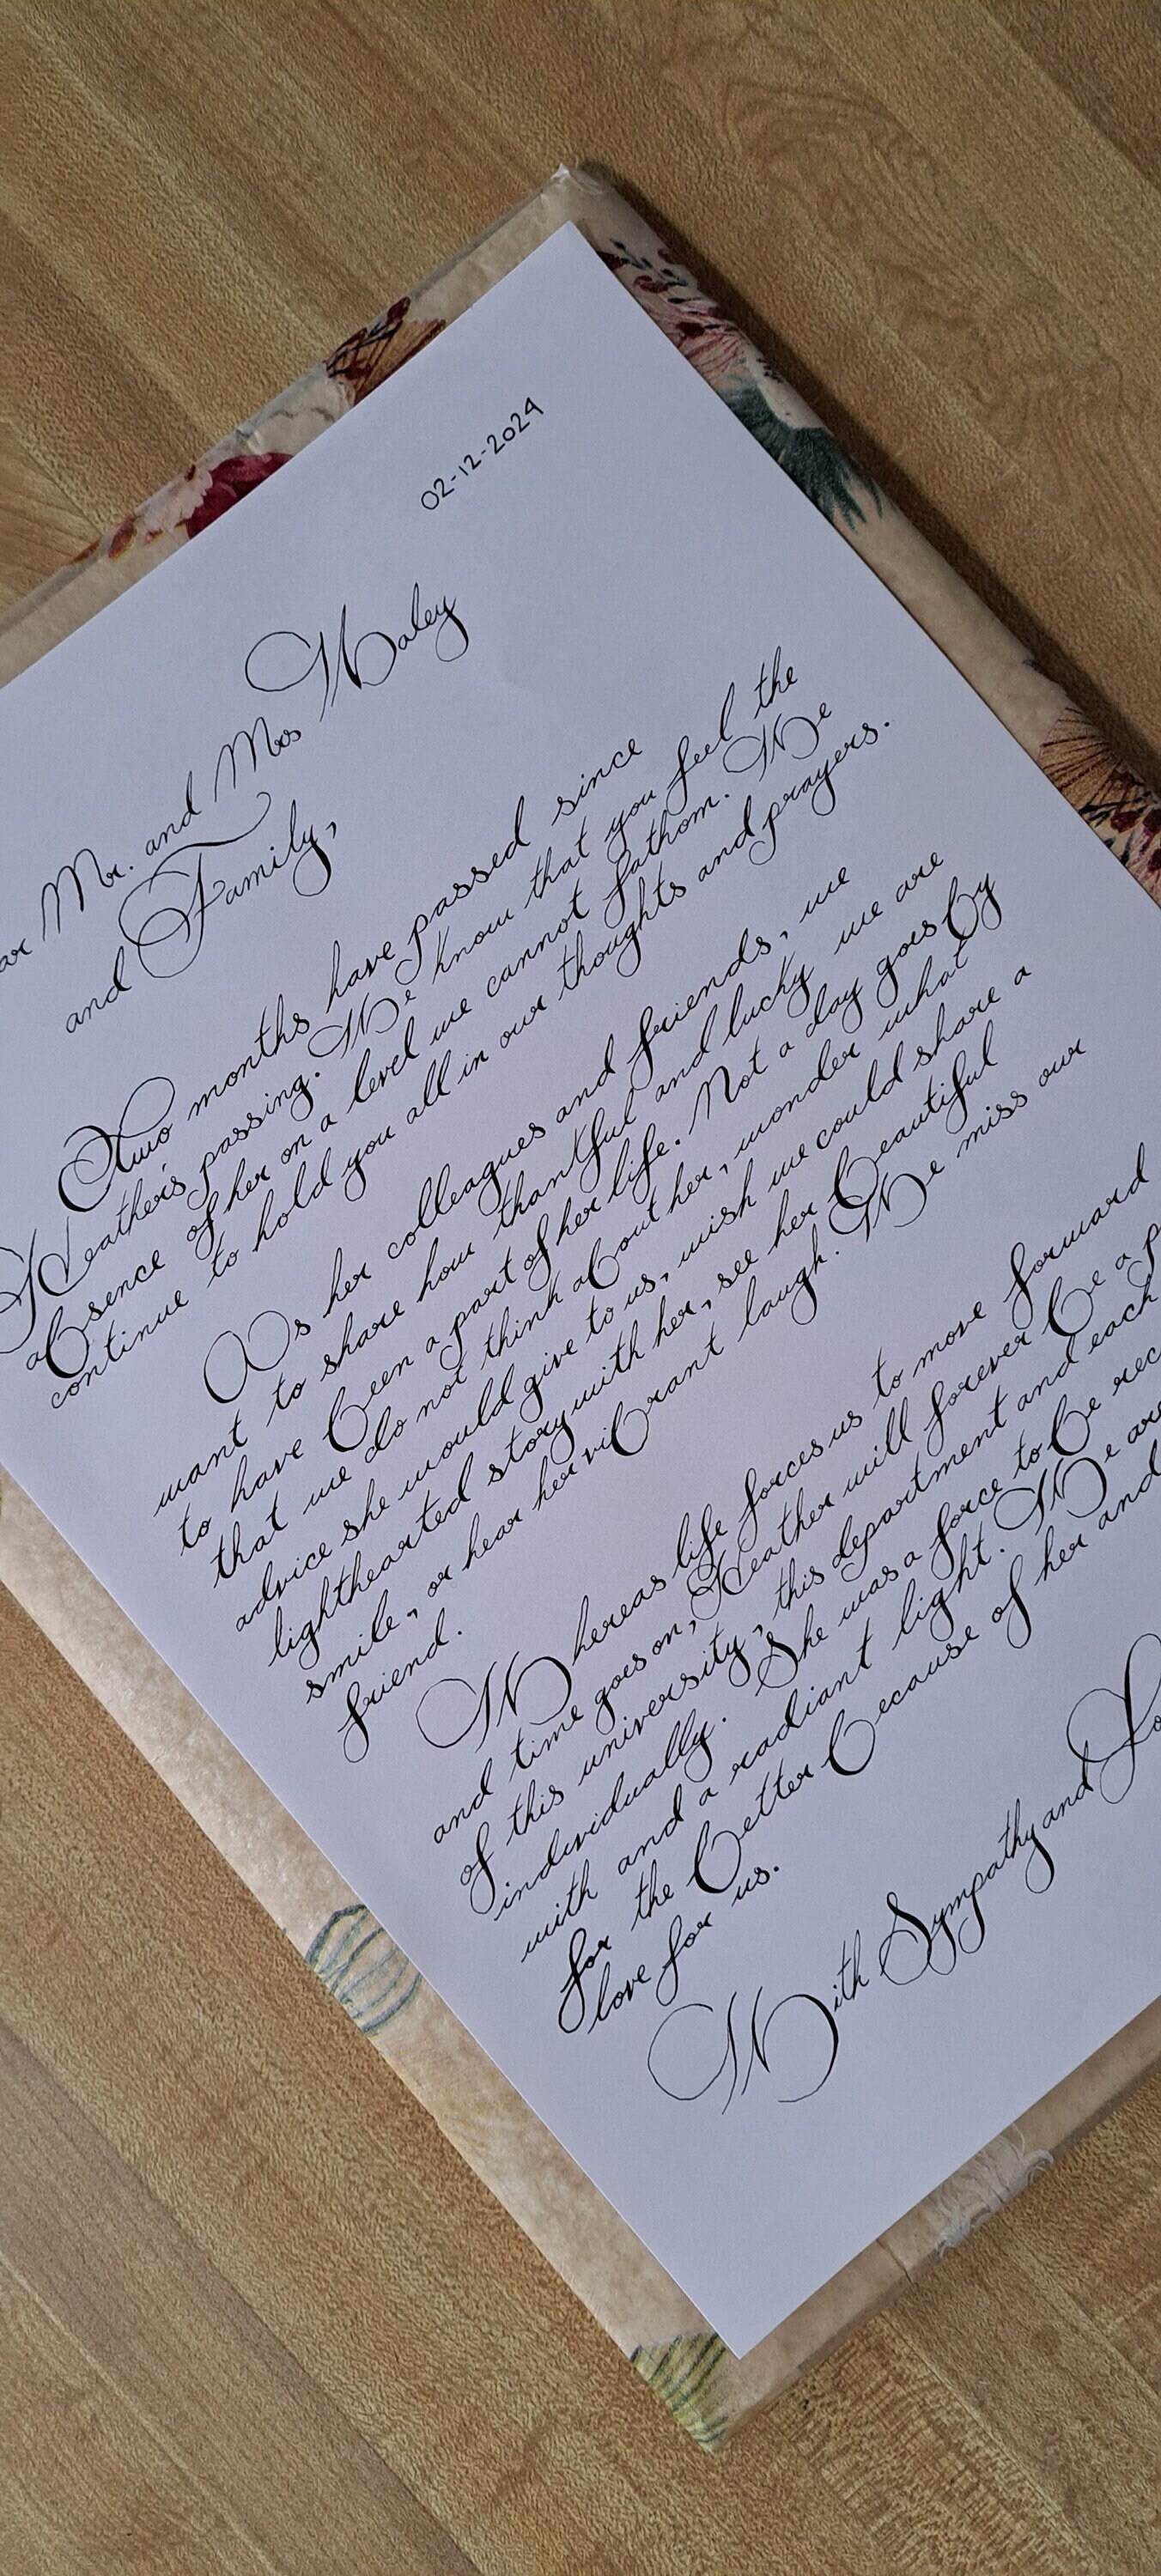 02-12-2024
ar Mr. and Mrs Waley
and Family,
Two months have passed since
Heather's passing. We know that you feel the
absence of her on a level we cannot fathom. We
continue to hold you all in our thoughts and prayers.
As her colleagues and friends, we
want to share how thankful and lucky we are
to have been a part of her life. Not a day goes by
that we do not think about her, wonder what
advice she would give to us, wish we could share a
lighthearted story with her, see her beautiful
smile, or hear her vibrant laugh. We miss our
friend.
Whereas life forces us to move forward
and time goes on, Heather will forever be a p
of this university, this department and each
individually. She was a force to be rec
with and a radiant light. We are
for the better because of her and
love for us.
With Sympathy and Lo